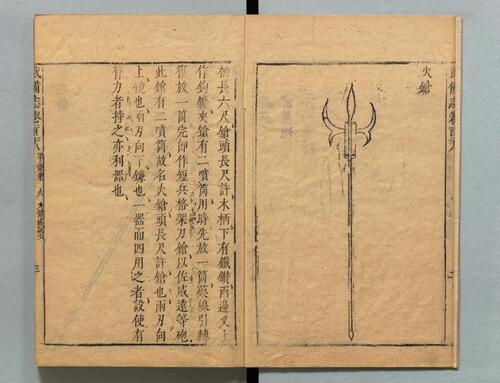 火鎗
柄長六尺鎗頭長尺許木柄下有鐵鐏兩邊叉上
作鉤鐮夾鎗有二噴筒用時先放一筒藥線引轉
復放一筒完卽作短兵格架刃鎗以佐威遠等砲
此鎗有二噴筒故名火鎗頭長尺許鎗也兩刃向
上鎲也兩刃向下鐮也一器而四用之者設使有
膂力者持之亦利器也
武備志卷百二八 軍資乘 火 三